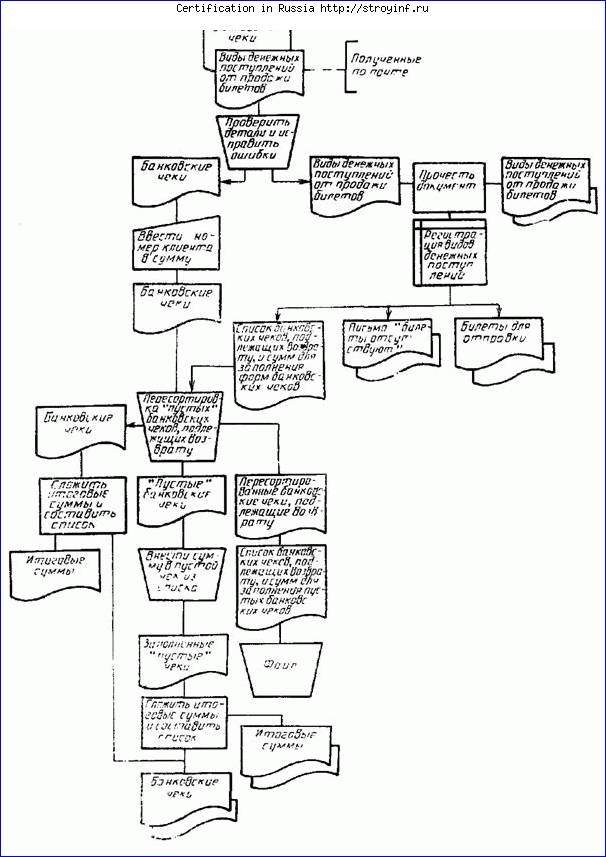 Certification in Russia http://stroyinf.ru
чеки
Виды денежных
поступлений
от продажи
билетов
Полученные
по почте
Проверить
детали и ис-
править
ошибки
Банковские
чеки
Виды денежных
поступлений
от продажи
билетов
Прочесть
документ
Виды денежных
поступлений
от продажи
билетов
Ввести но-
мер клиента
в сумму
Регистра-
ция видов
денежных
поступ-
лений
Банковские
чеки
Список банковс-
ких чеков, под-
лежащих возвра-
ту, и сумм для
заполнения
форм банковс-
ких чеков
Письмо "биле-
ты отсут-
ствуют"
Билеты для
отправки
Пересортиров-
ка "пустых"
банковских
чеков, подле-
жащих воз-
врату
Банковские
чеки
Сложить
итоговые
суммы и
составить
список
"Пустые"
банковские
чеки
Пересортиро-
ванные банковс-
кие чеки, под-
лежащие возв-
рату
Итоговые
суммы
Внести сум-
му в пустой
чек из
списка
Список банковс-
ких чеков, под-
лежащих возвра-
ту, и сумм для
заполнения пус-
тых банковс-
ких чеков
Заполненные
"пустые"
чеки
Файл
Сложить ито-
говые суммы
и составить
список
Итоговые
суммы
Банковские
чеки